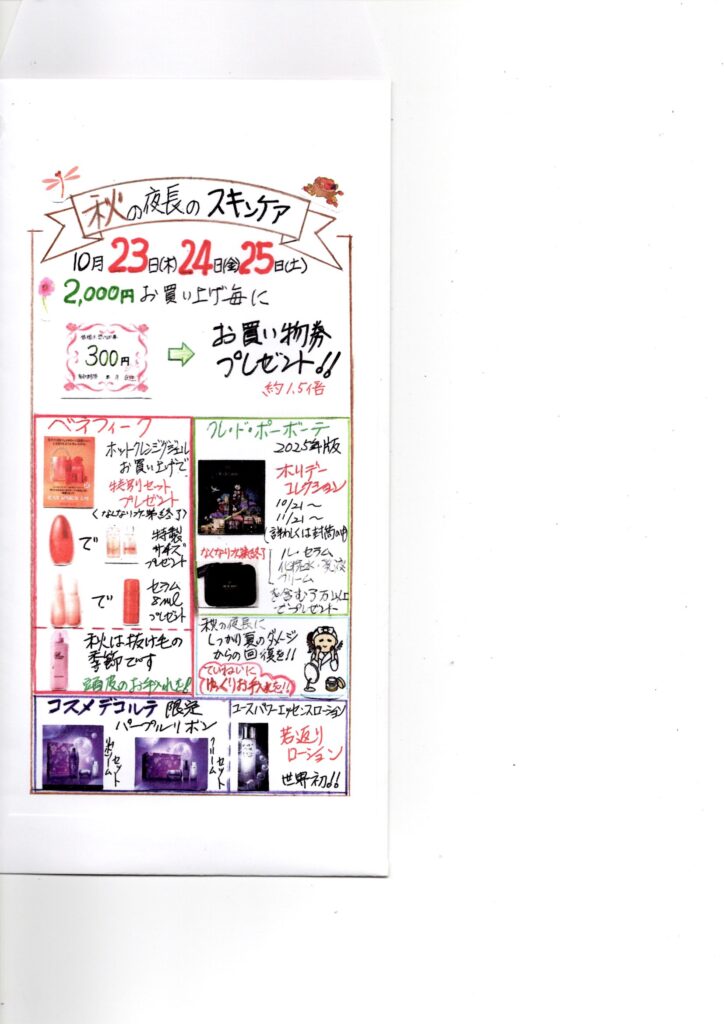 秋の夜長のスキンケア
10月23日(木)24日(金)25日(土)
2,000円お買い上げ毎に
300円
お買い物券
プレゼント!!
約1.5倍
ベネフィーク
ホットクレンジングジェル
お買い上げで
特別セット
プレゼント
(なくなり次第終了)
で
特製
サイズ
プレゼント
で
セラム
8ml
プレゼント
秋は抜け毛の
季節です
頭皮のお手入れを!
クレ・ド・ポーボーテ
2025年版
ホリデー
コレクション
10/21〜
11/21〜
(詳わしくは封筒の中)
なくなり次第終了
ル・セラム
化粧水・乳液
クリーム
を含む3万以上
でプレゼント
秋の夜長に
しっかり夏のダメージ
からの回復を!!
ていねいに
ゆっくりお手入れを!!
コスメデコルテ 限定
パープルリボン
セット
クリーム
セット
コースパワーエッセンスローション
若返り
ローション
世界初!!